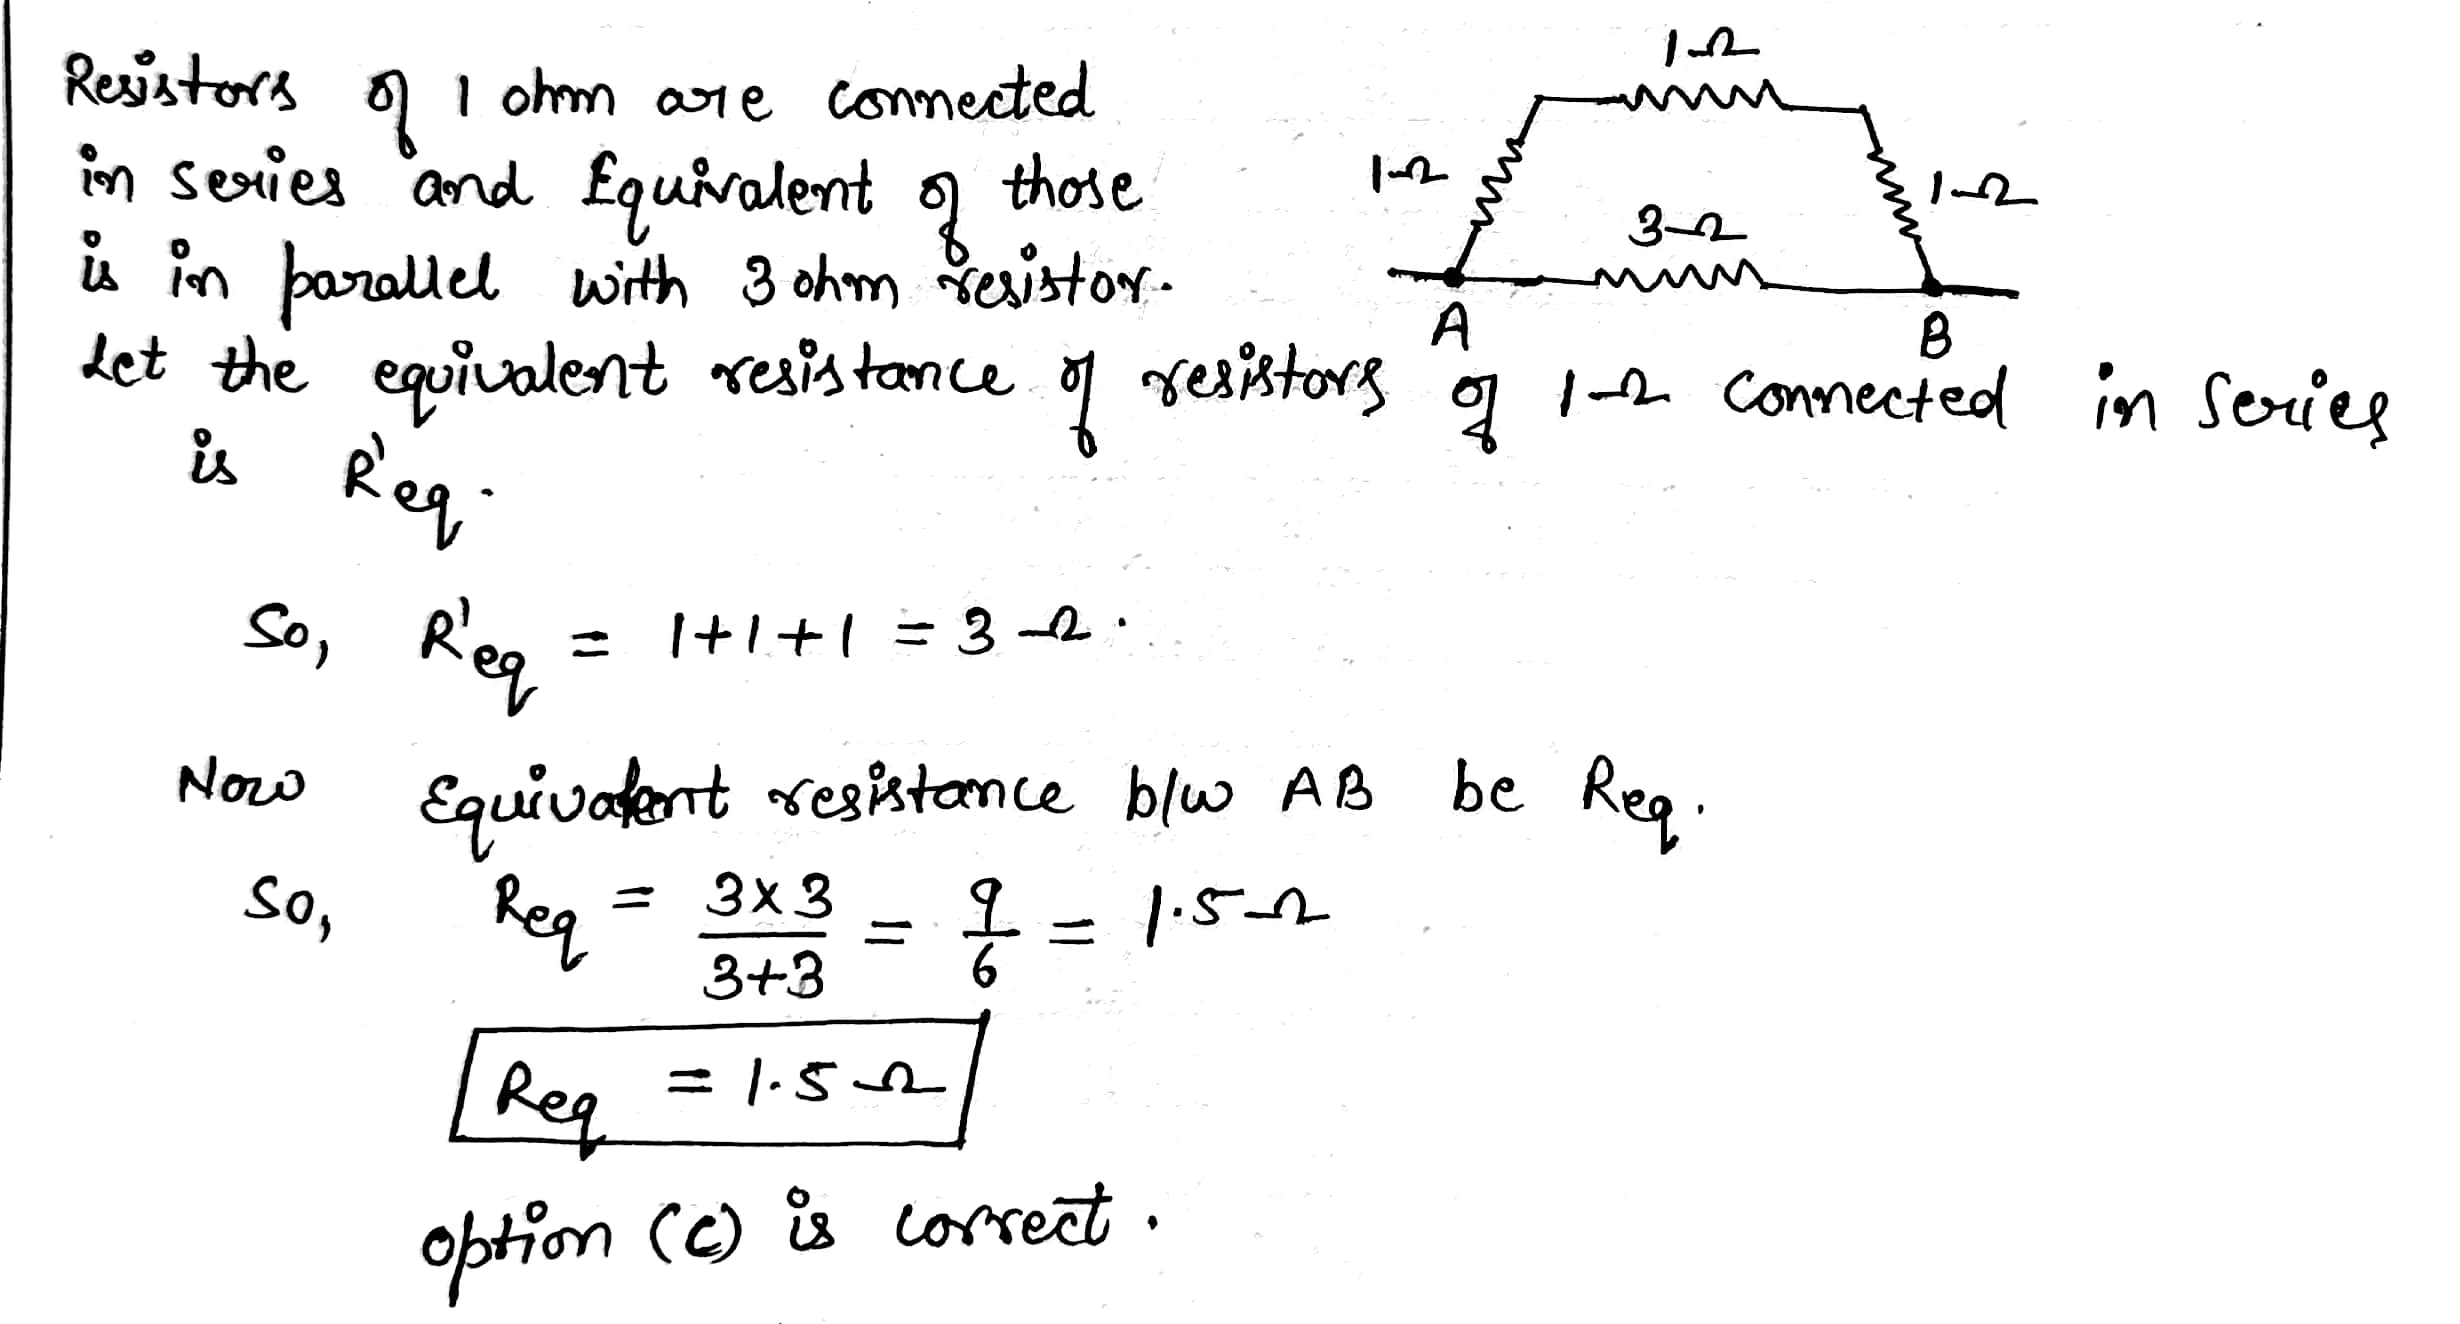 Resistors of 1 ohm are connected
in series and Equivalent of those
is in parallel with 3 ohm resistor.
1Ω
1Ω
1Ω
3Ω
A
B
Let the equivalent resistance of resistors of 1Ω connected in series
is R'eq.
So, R'eq = 1+1+1 = 3Ω.
Now Equivalent resistance b/w AB be Req.
So, Req = 3×3/3+3 = 9/6 = 1.5Ω
Req = 1.5Ω
option (c) is correct.